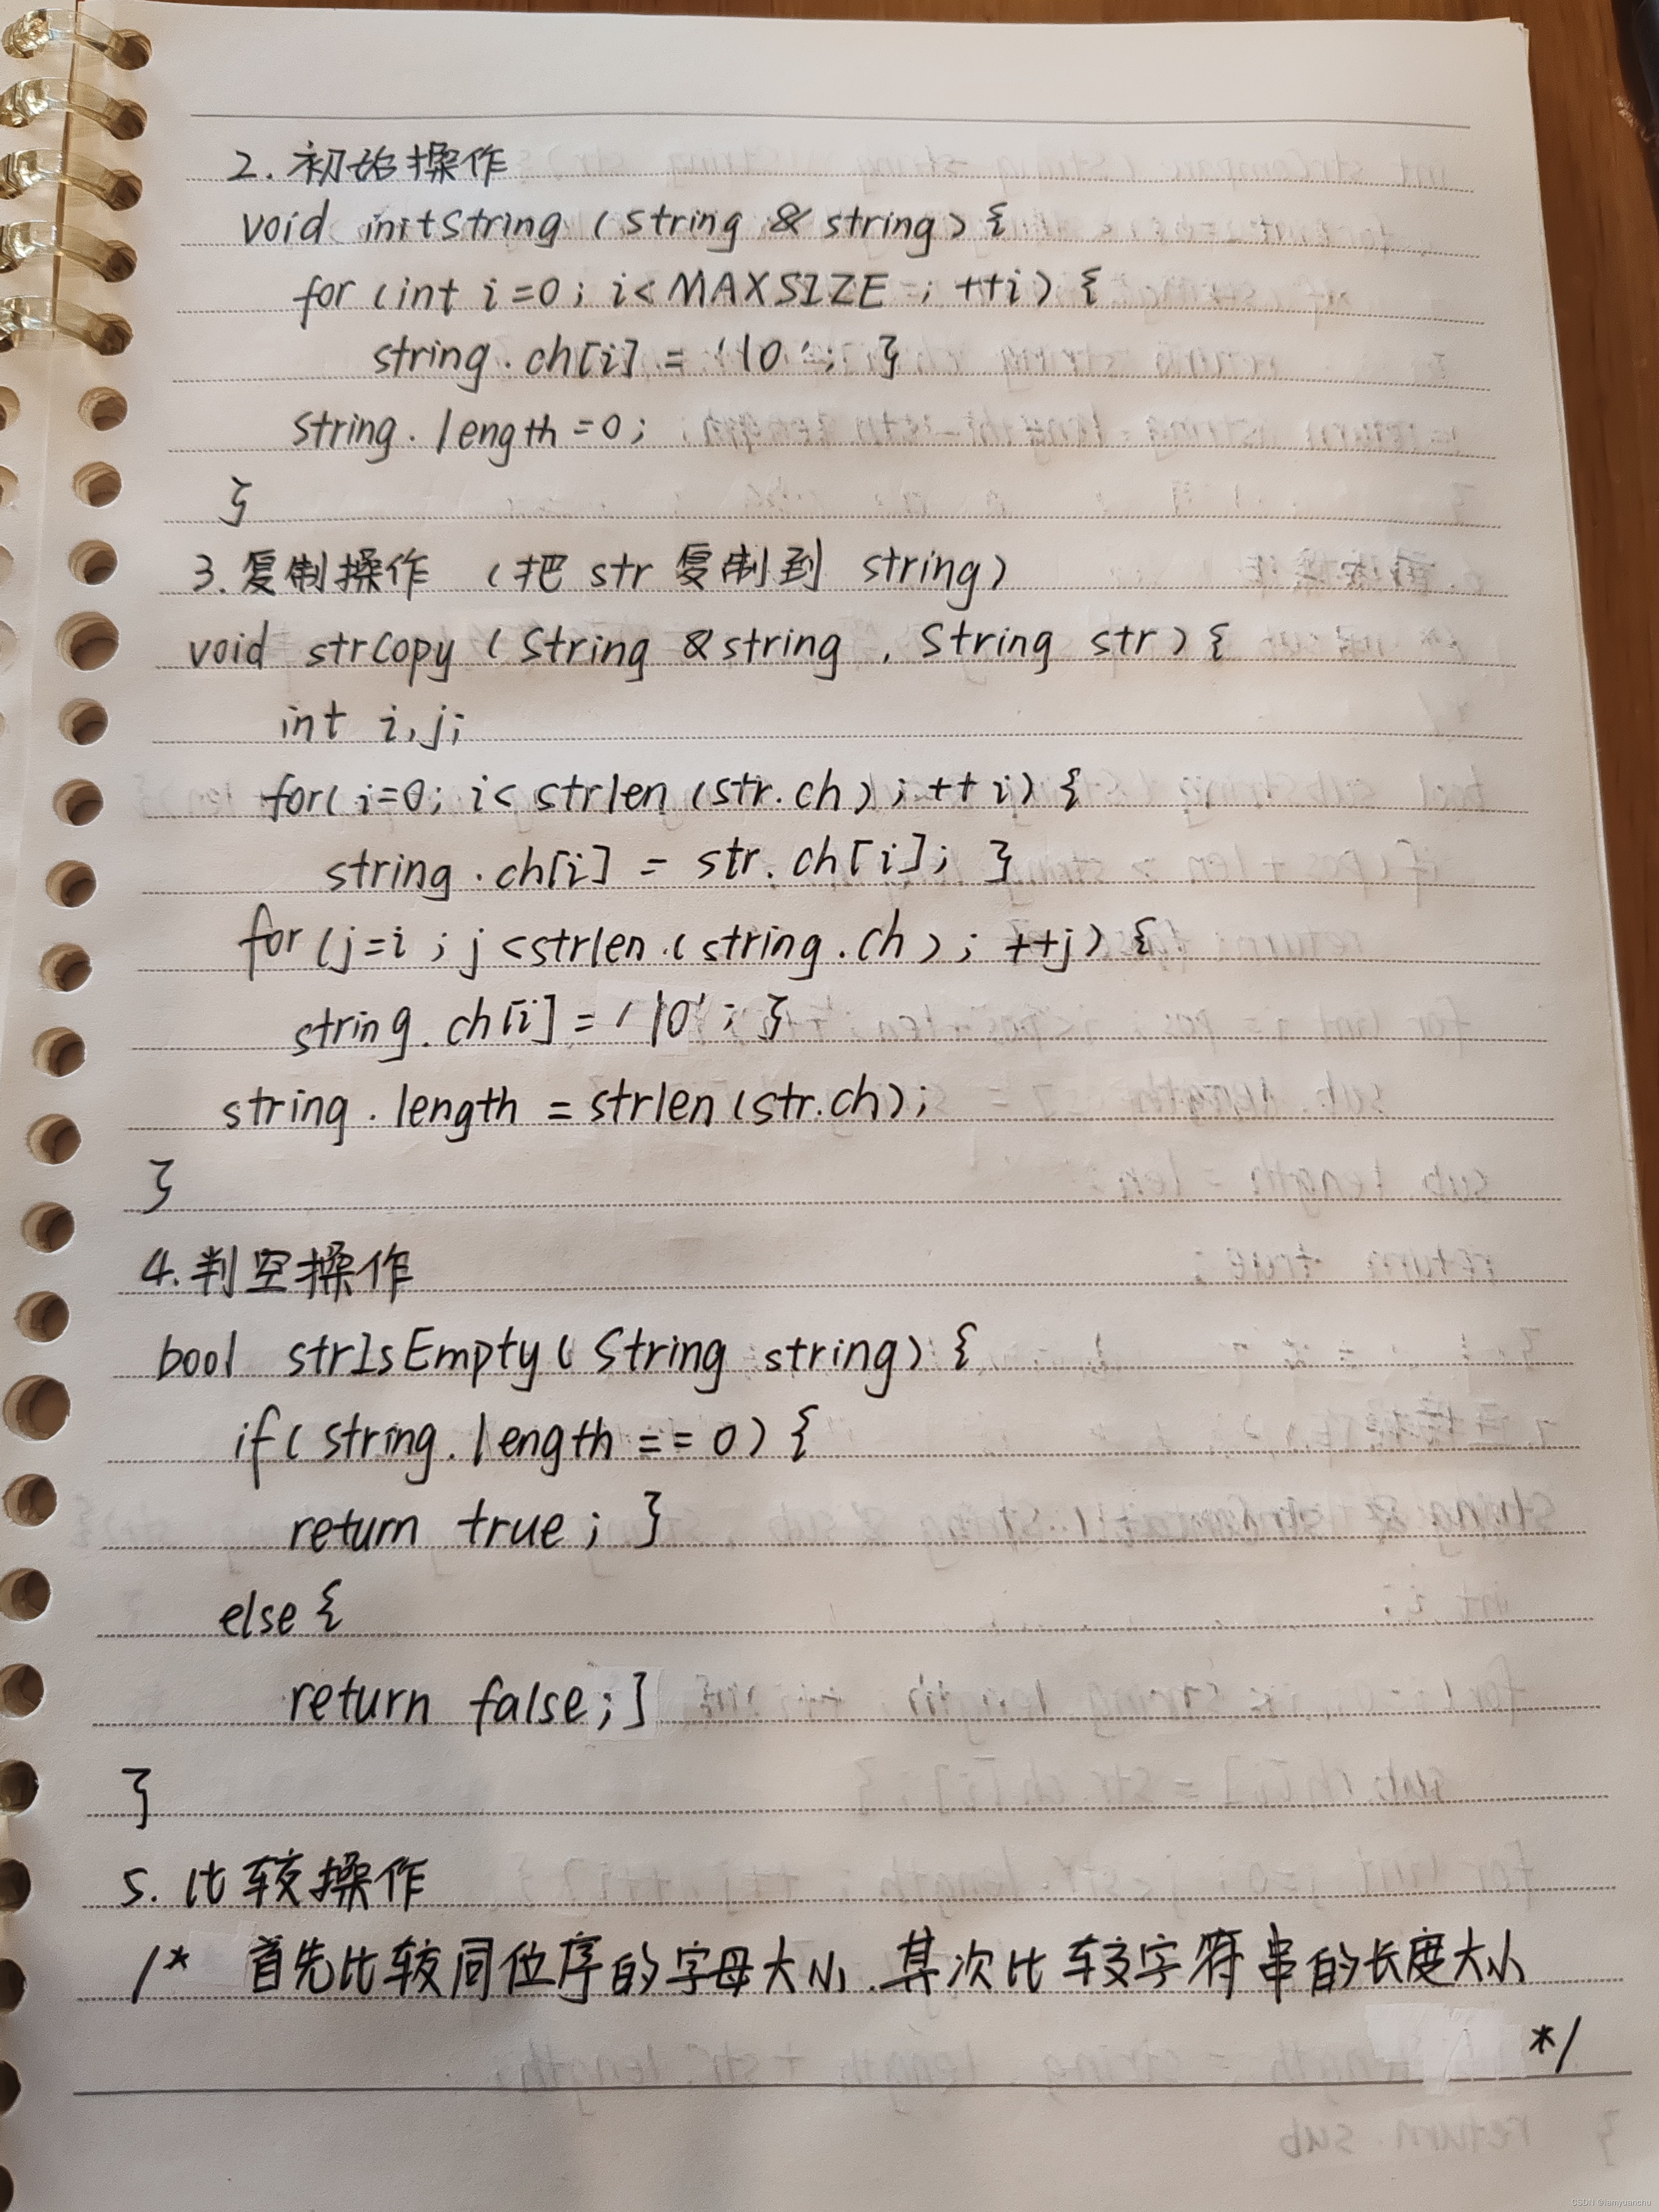 2. 初始操作
void initString (String & string) {
for (int i=0; i<MAXSIZE ; ++i) {
string.ch[i] = '\0'; }
string.length=0;
}
3.复制操作 (把 str 复制到 string)
void strCopy (String &string, String str) {
int i,j;
for(i=0; i< strlen (str.ch); ++i) {
string.ch[i] = str.ch[i]; }
for(j=i; j<strlen(string.ch); ++j) {
string.ch[i]='\0'; }
string.length = strlen(str.ch);
}
4.判空操作
bool strIsEmpty(String string) {
if(string.length == 0) {
return true; }
else {
return false;}
}
5. 比较操作
/* 首先比较同位序的字母大小.其次比较字符串的长度大小
*/
CSDN @iamyuanchu